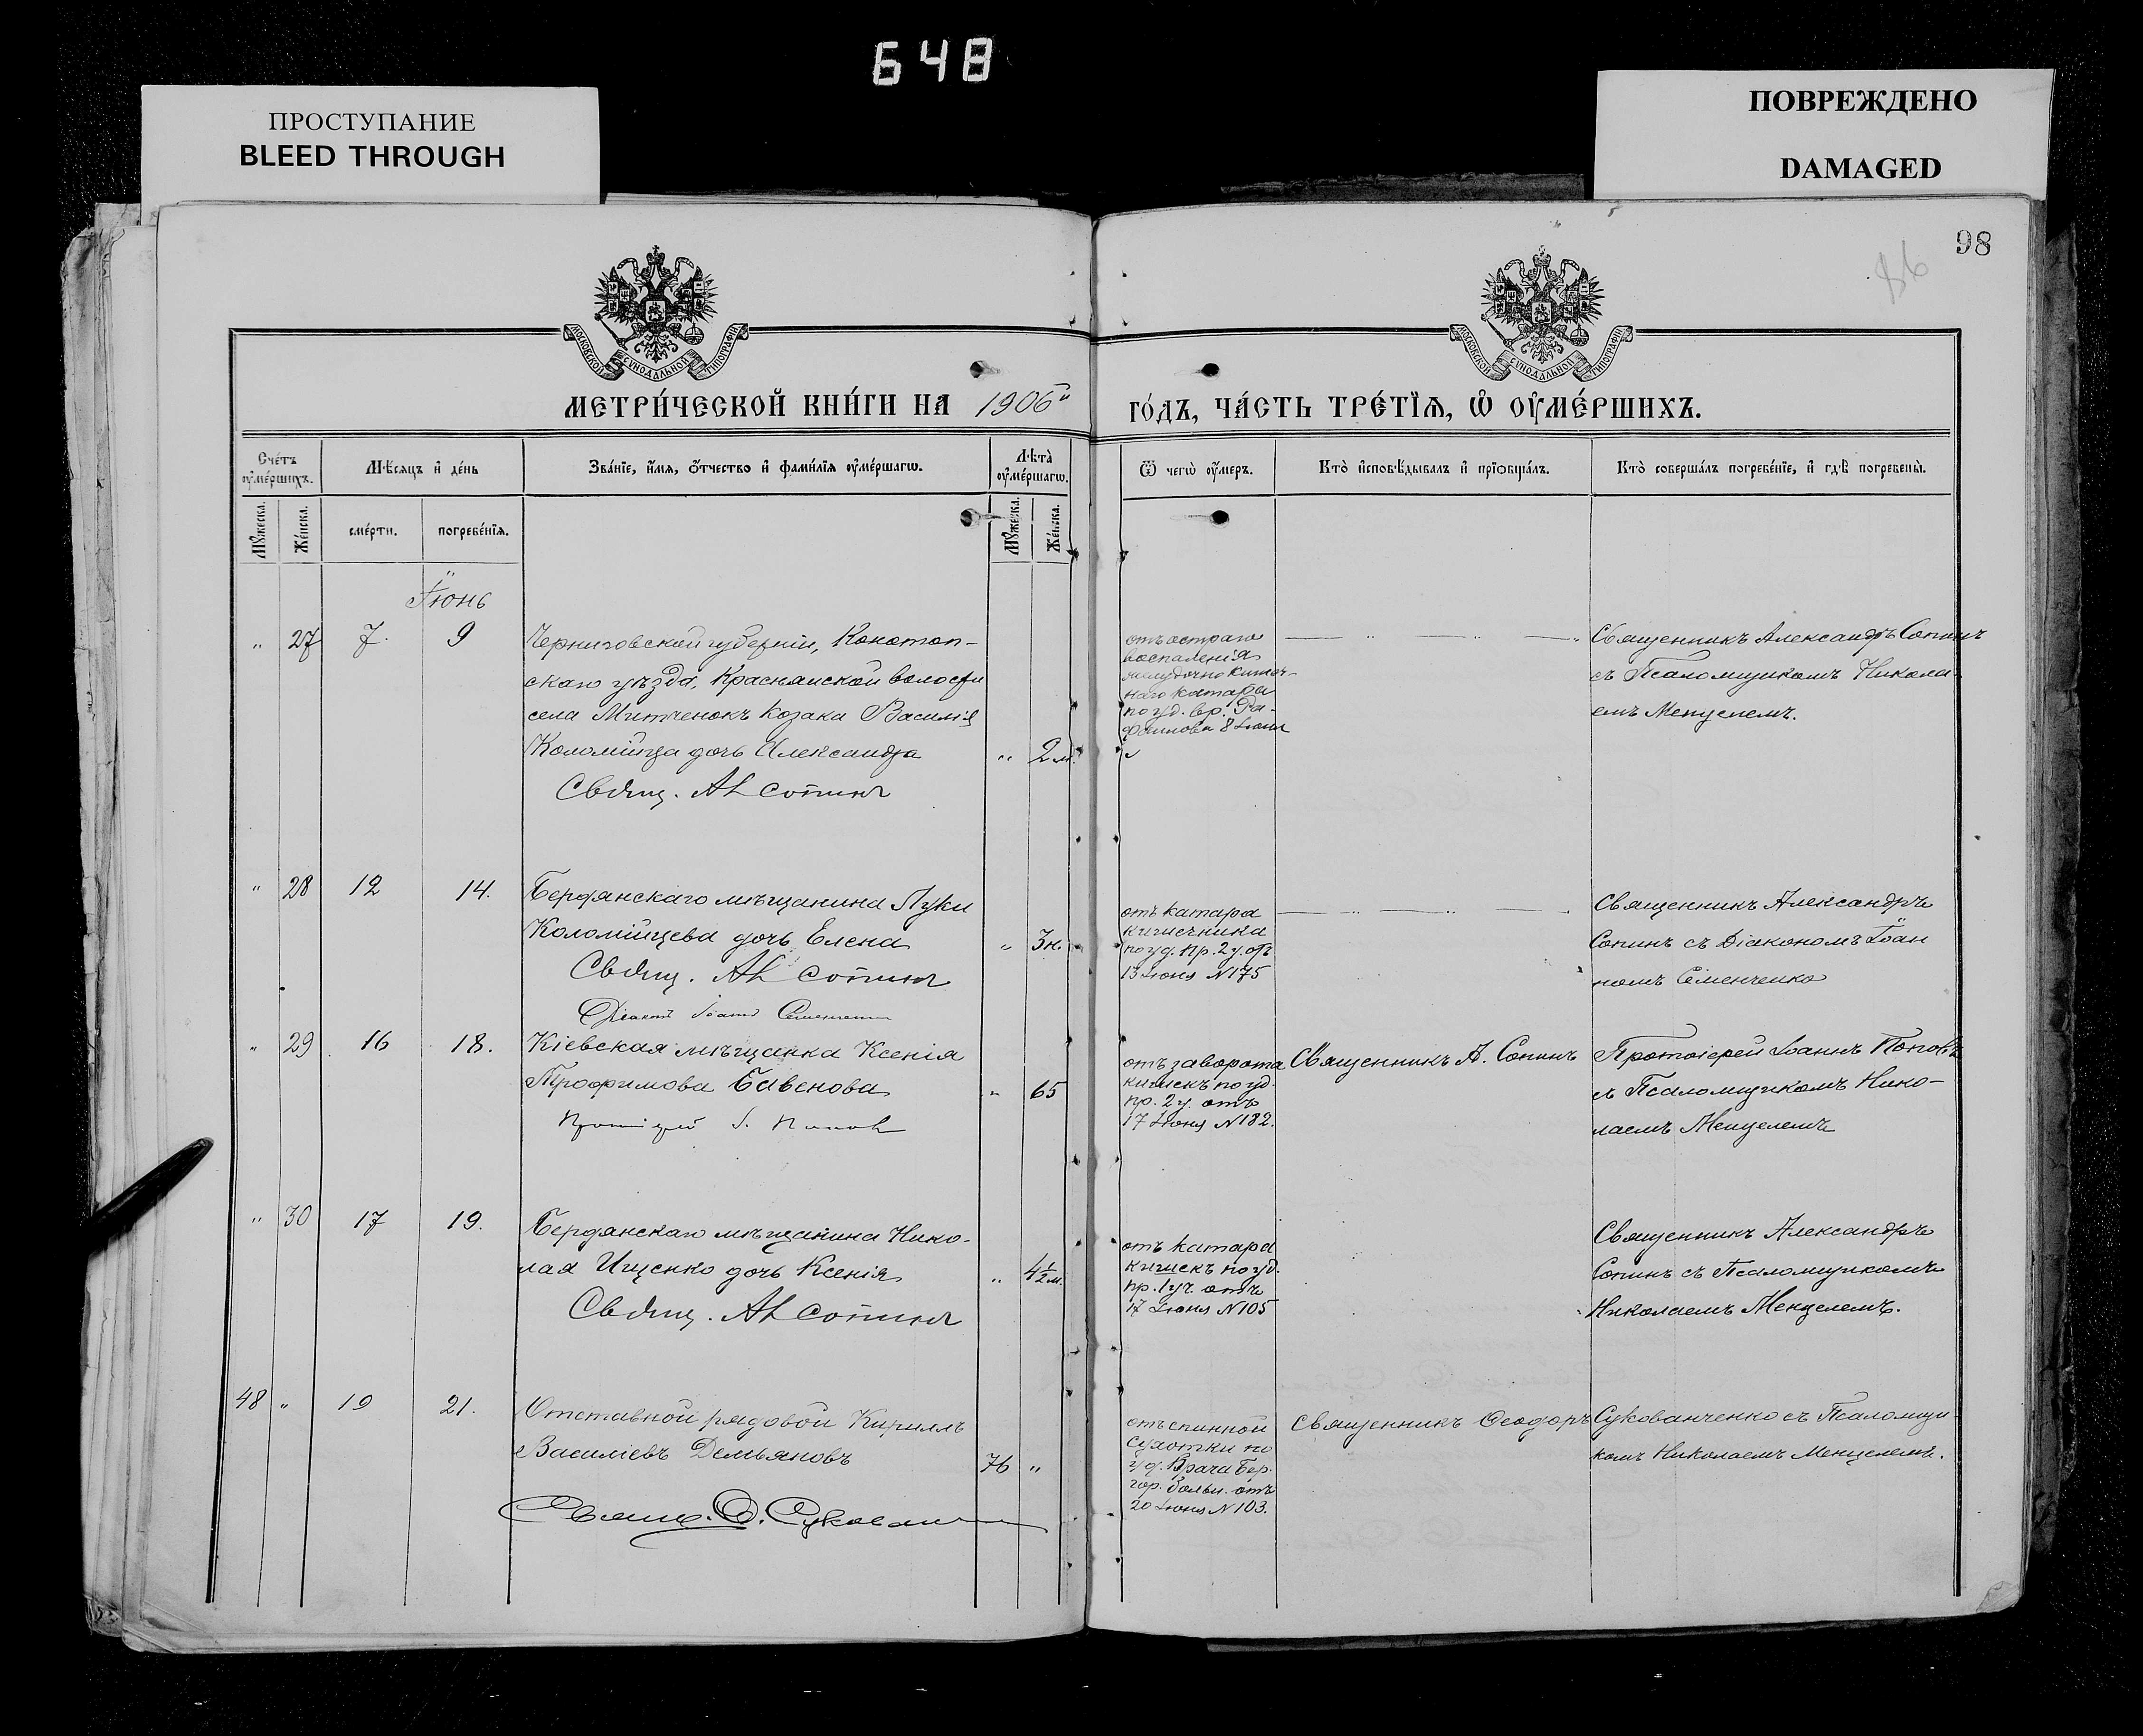 648
ПРОСТУПАНИЕ
BLEED THROUGH
ПОВРЕЖДЕНО
DAMAGED
98
МОСКОВСКОЙ СѴНОДАЛЬНОЙ ТИПОГРАФІИ
МОСКОВСКОЙ СѴНОДАЛЬНОЙ ТИПОГРАФІИ
МЕТРИ́ЧЕСКОЙ КНИ́ГИ НА 1906й ГО́ДЪ, ЧА́СТЬ ТРЕ́ТЇѦ, Ѡ҆ ОУ҆МЕ́РШИХЪ.
Сче́тъ оу҆ме́ршихъ.
Мѣ́сѧцъ и҆ де́нь
Зва́нїе, и҆́мѧ, ѻ҆́тчество и҆ фамѝлїѧ оу҆ме́ршагѡ.
Лѣ̀та оу҆ме́ршагѡ.
Ѿ чегѡ̀ оу҆́меръ.
Кто̀ и҆сповѣ́дывалъ и҆ прїѡбща́лъ.
Кто̀ соверша́лъ погребе́нїе, и҆ гдѣ̀ погребены̀.
Мꙋ́жеска.
Же́нска.
сме́рти.
погребе́нїѧ.
Мꙋ́жеска.
Же́нска.
Іюнь
" 27 7. 9
Черниговской губерніи, Конотоп-
скаго уѣзда, Краснянской волости
села Митченокъ козака Василія
Коломійца дочь Александра
" 2 м.
Свящ. Ал Сопинъ
отъ остраго
воспаленія
желудочно кишеч-
наго катара
по уд. вр. Ра-
фаилова 8 Іюня
Священникъ Александръ Сопинъ
съ Псаломщикомъ Никола-
емъ Менцелемъ.
" 28 12 14.
Бердянскаго мѣщанина Луки
Коломійцева дочь Елена
" 3 н.
Свящ. Ал Сопинъ
Діаконъ Іоаннъ Семенченко
отъ катара
кишечника
по уд. пр. 2 у. отъ
13 Іюня №175
Священникъ Александръ
Сопинъ съ Діакономъ Іоан
номъ Семенченко
" 29 16 18.
Кіевская мѣщанка Ксенія
Трофимова Савенова
" 65
Протоіерей І. Поповъ
отъ заворота
кишекъ по уд.
пр. 2 у. отъ
17 Іюня №182.
Священникъ А. Сопинъ
Протоіерей Іоаннъ Поповъ
съ Псаломщикомъ Нико-
лаемъ Менцелемъ
" 30 17 19.
Бердянскаго мѣщанина Нико-
лая Ищенко дочь Ксенія
" 4½ м.
Свящ. Ал Сопинъ
отъ катара
кишекъ по уд.
пр. 1 уч. отъ
17 Іюня №105
Священникъ Александръ
Сопинъ съ Псаломщикомъ
Николаемъ Менцелемъ.
48 " 19 21.
Отставной рядовой Кириллъ
Василіевъ Демьяновъ
76 "
Священ. Ѳ. Сукован
отъ спинной
сухотки по
уд. Врача Бер.
гор. больн. отъ
20 Іюня №103.
Священникъ Ѳеодоръ Сукованченко съ Псаломщи-
комъ Николаемъ Менцелемъ.